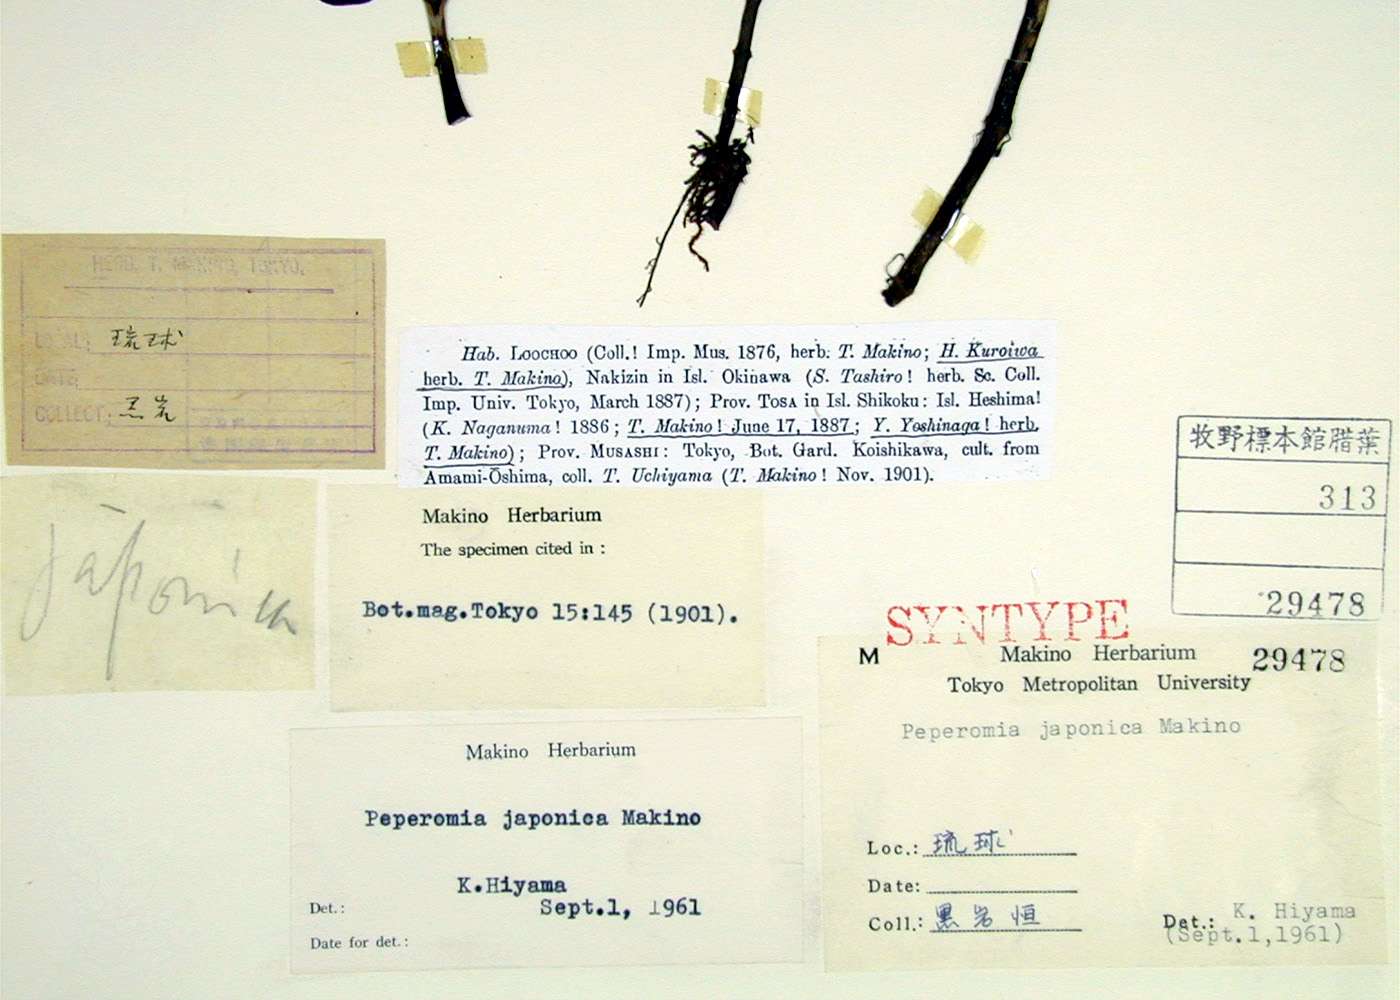 HERB. T. MAKINO, TOKYO.
LOCAL: 琉球
DATE
COLLECT. 黒岩
japonica
Hab. LOOCHOO (Coll.! Imp. Mus. 1876, herb. T. Makino; H. Kuroiwa
herb. T. Makino), Nakizin in Isl. Okinawa (S. Tashiro! herb. Sc. Coll.
Imp. Univ. Tokyo, March 1887); Prov. TOSA in Isl. Shikoku: Isl. Heshima!
(K. Naganuma! 1886; T. Makino! June 17, 1887; Y. Yoshinaga! herb.
T. Makino); Prov. MUSASHI: Tokyo, Bot. Gard. Koishikawa, cult. from
Amami-Ōshima, coll. T. Uchiyama (T. Makino! Nov. 1901).
Makino Herbarium
The specimen cited in:
Bot.mag.Tokyo 15:145 (1901).
Makino Herbarium
Peperomia japonica Makino
K.Hiyama
Det.: Sept.1, 1961
Date for det.:
牧野標本館腊葉
313
29478
SYNTYPE
M Makino Herbarium 29478
Tokyo Metropolitan University
Peperomia japonica Makino
Loc.: 琉球
Date:
Coll.: 黒岩恒
Det.: K. Hiyama
(Sept.1,1961)